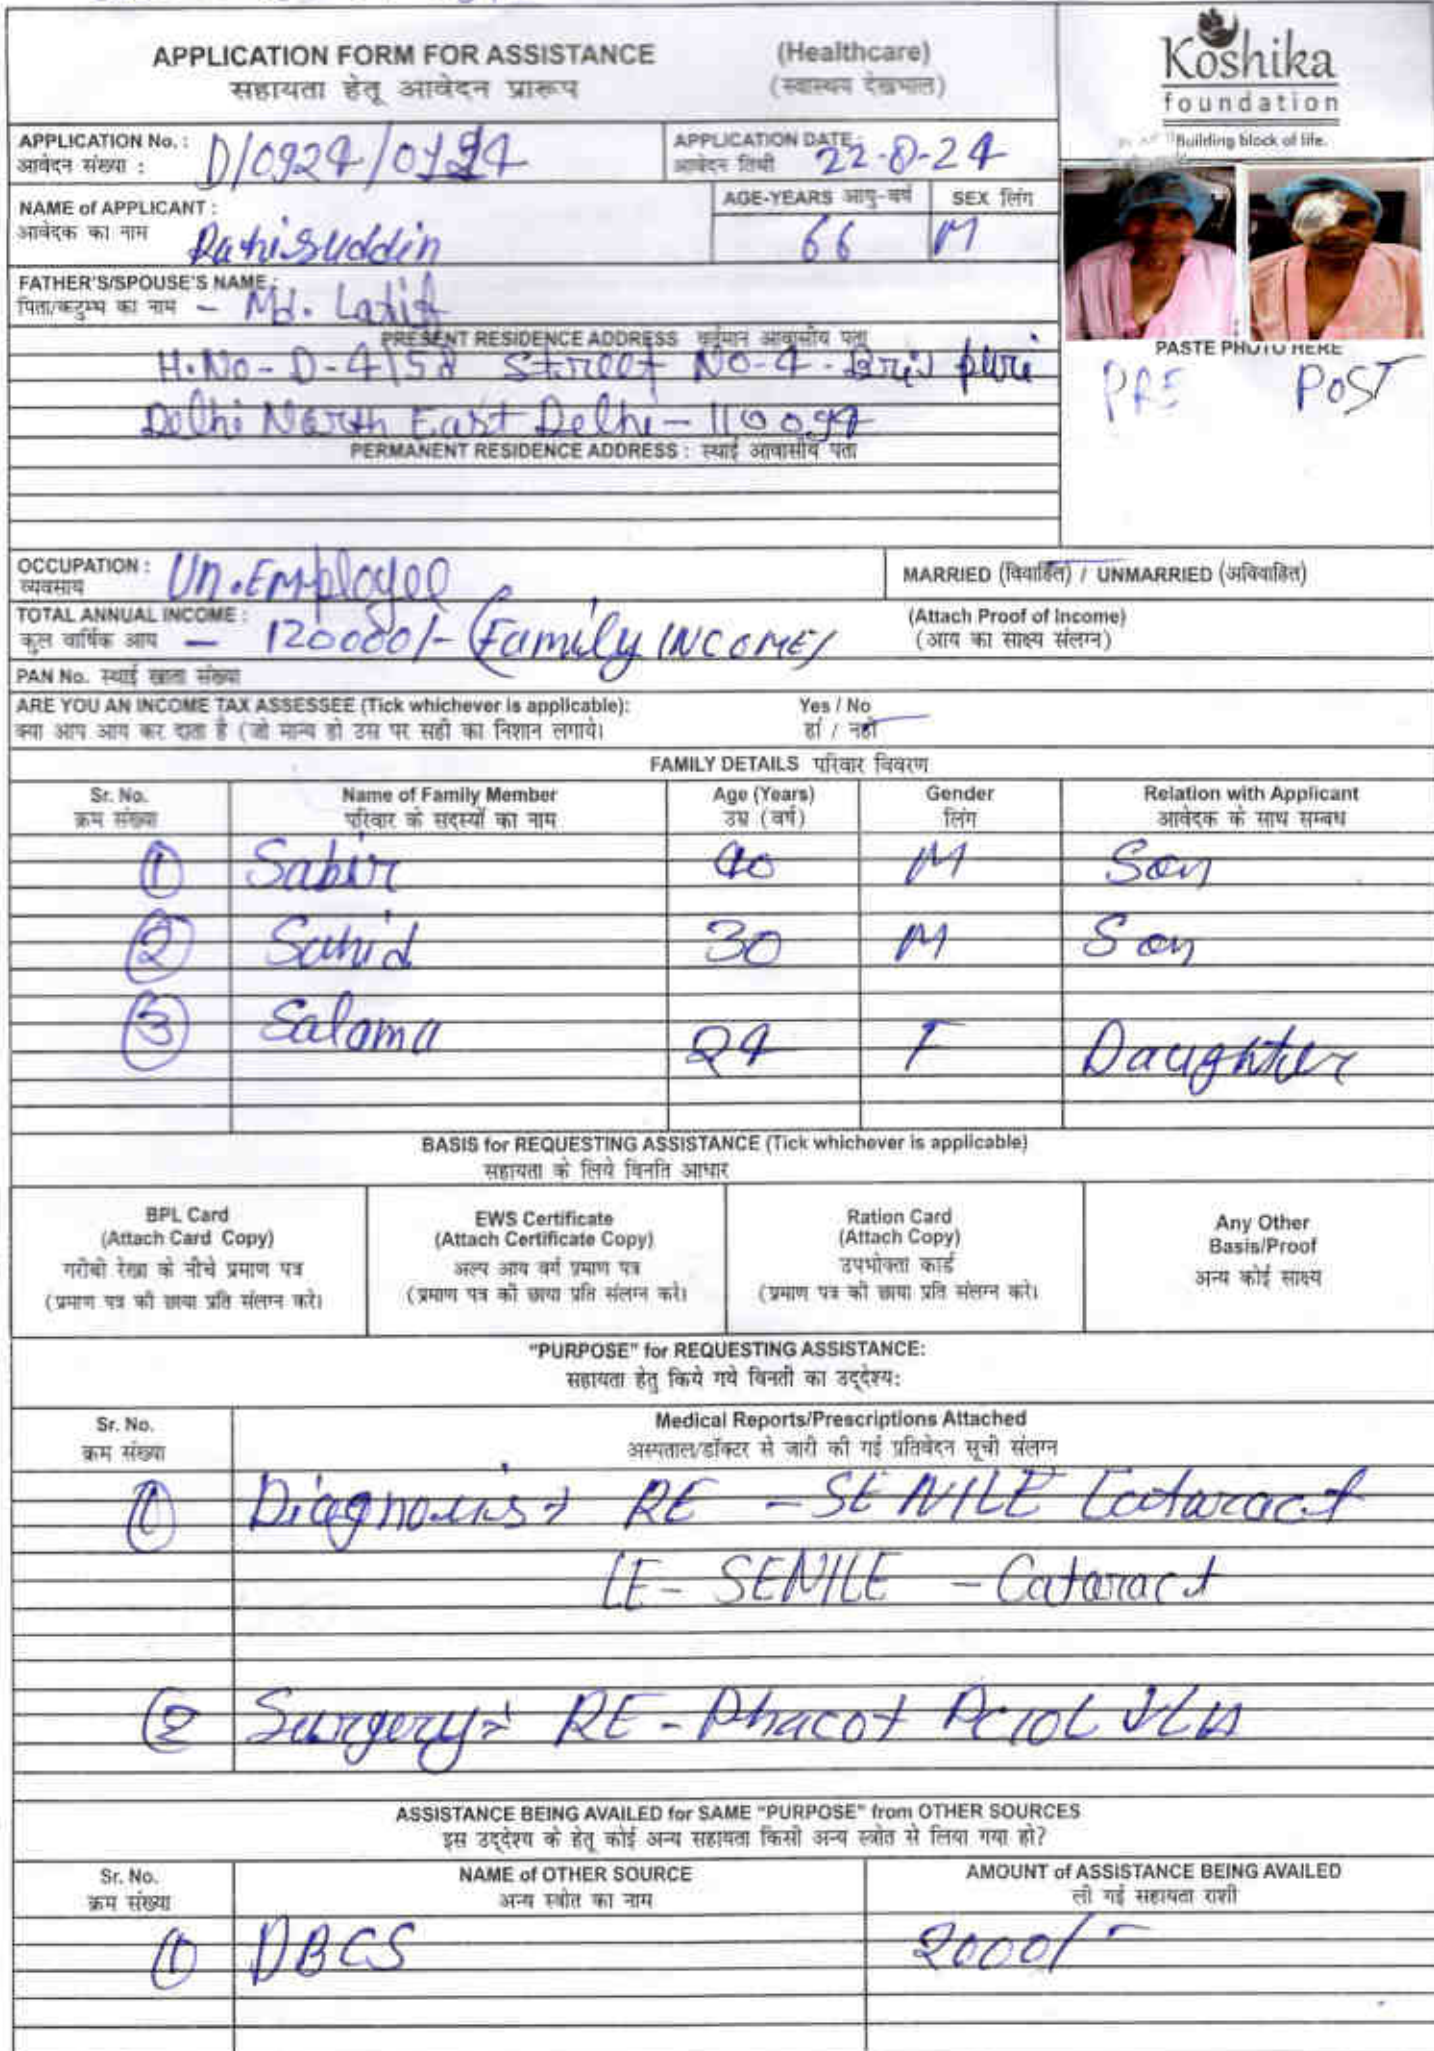 APPLICATION FORM FOR ASSISTANCE (Healthcare)
सहायता हेतू आवेदन प्रारूप (स्वास्थय देखभाल)
Koshika
foundation
Building block of life.
APPLICATION No. : D/0924/0124
आवेदन संख्या :
APPLICATION DATE : 22-8-24
आवेदन तिथी
NAME of APPLICANT : Rahisuddin
आवेदक का नाम
AGE-YEARS आयु-वर्ष
66
SEX लिंग
M
FATHER'S/SPOUSE'S NAME : Md. Latif
पिता/कटुम्ब का नाम -
PRESENT RESIDENCE ADDRESS वर्तमान आवासीय पता
H.No-D-4/58 Street No-4-Brij puri
Delhi North East Delhi-110094
PERMANENT RESIDENCE ADDRESS : स्थाई आवासीय पता
PASTE PHOTO HERE
PRE POST
OCCUPATION : Un.Employee
व्यवसाय
MARRIED (विवाहित) / UNMARRIED (अविवाहित)
TOTAL ANNUAL INCOME :
कुल वार्षिक आय - 120000/- (Family INCOME)
(Attach Proof of Income)
(आय का साक्ष्य संलग्न)
PAN No. स्थाई खाता संख्या
ARE YOU AN INCOME TAX ASSESSEE (Tick whichever is applicable): Yes / No
क्या आप आय कर दाता है (जो मान्य हो उस पर सही का निशान लगाये। हां / नहीं
FAMILY DETAILS परिवार विवरण
Sr. No. Name of Family Member Age (Years) Gender Relation with Applicant
क्रम संख्या परिवार के सदस्यों का नाम उम्र (वर्ष) लिंग आवेदक के साथ सम्बध
1 Sabir 40 M Son
2 Sahid 30 M Son
3 Salama 24 F Daughter
BASIS for REQUESTING ASSISTANCE (Tick whichever is applicable)
सहायता के लिये विनति आधार
BPL Card
(Attach Card Copy)
गरीबी रेखा के नीचे प्रमाण पत्र
(प्रमाण पत्र की छाया प्रति संलग्न करे।
EWS Certificate
(Attach Certificate Copy)
अल्प आय वर्ग प्रमाण पत्र
(प्रमाण पत्र की छाया प्रति संलग्न करे।
Ration Card
(Attach Copy)
उपभोक्ता कार्ड
(प्रमाण पत्र की छाया प्रति संलग्न करे।
Any Other
Basis/Proof
अन्य कोई साक्ष्य
"PURPOSE" for REQUESTING ASSISTANCE:
सहायता हेतु किये गये विनती का उद्देश्य:
Sr. No. Medical Reports/Prescriptions Attached
क्रम संख्या अस्पताल/डॉक्टर से जारी की गई प्रतिवेदन सूची संलग्न
1 Diagnosis RE - SENILE Cataract
LE- SENILE - Cataract
2 Surgery RE - Phaco+ PCIOL
ASSISTANCE BEING AVAILED for SAME "PURPOSE" from OTHER SOURCES
इस उद्देश्य के हेतू कोई अन्य सहायता किसी अन्य स्त्रोत से लिया गया हो?
Sr. No. NAME of OTHER SOURCE AMOUNT of ASSISTANCE BEING AVAILED
क्रम संख्या अन्य स्त्रोत का नाम ली गई सहायता राशी
1 DBCS 2000/-